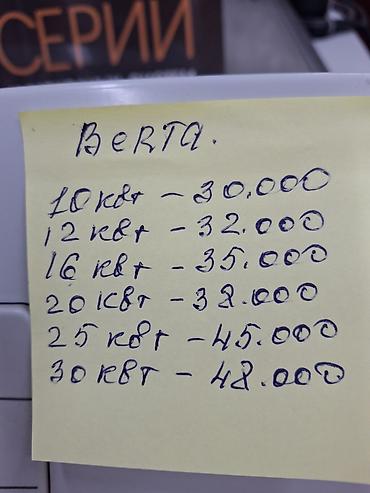 СЕРИИ
BeRTA.
10 квт – 30.000
12 квт – 32.000
16 квт – 35.000
20 квт – 38.000
25 квт – 45.000
30 квт – 48.000